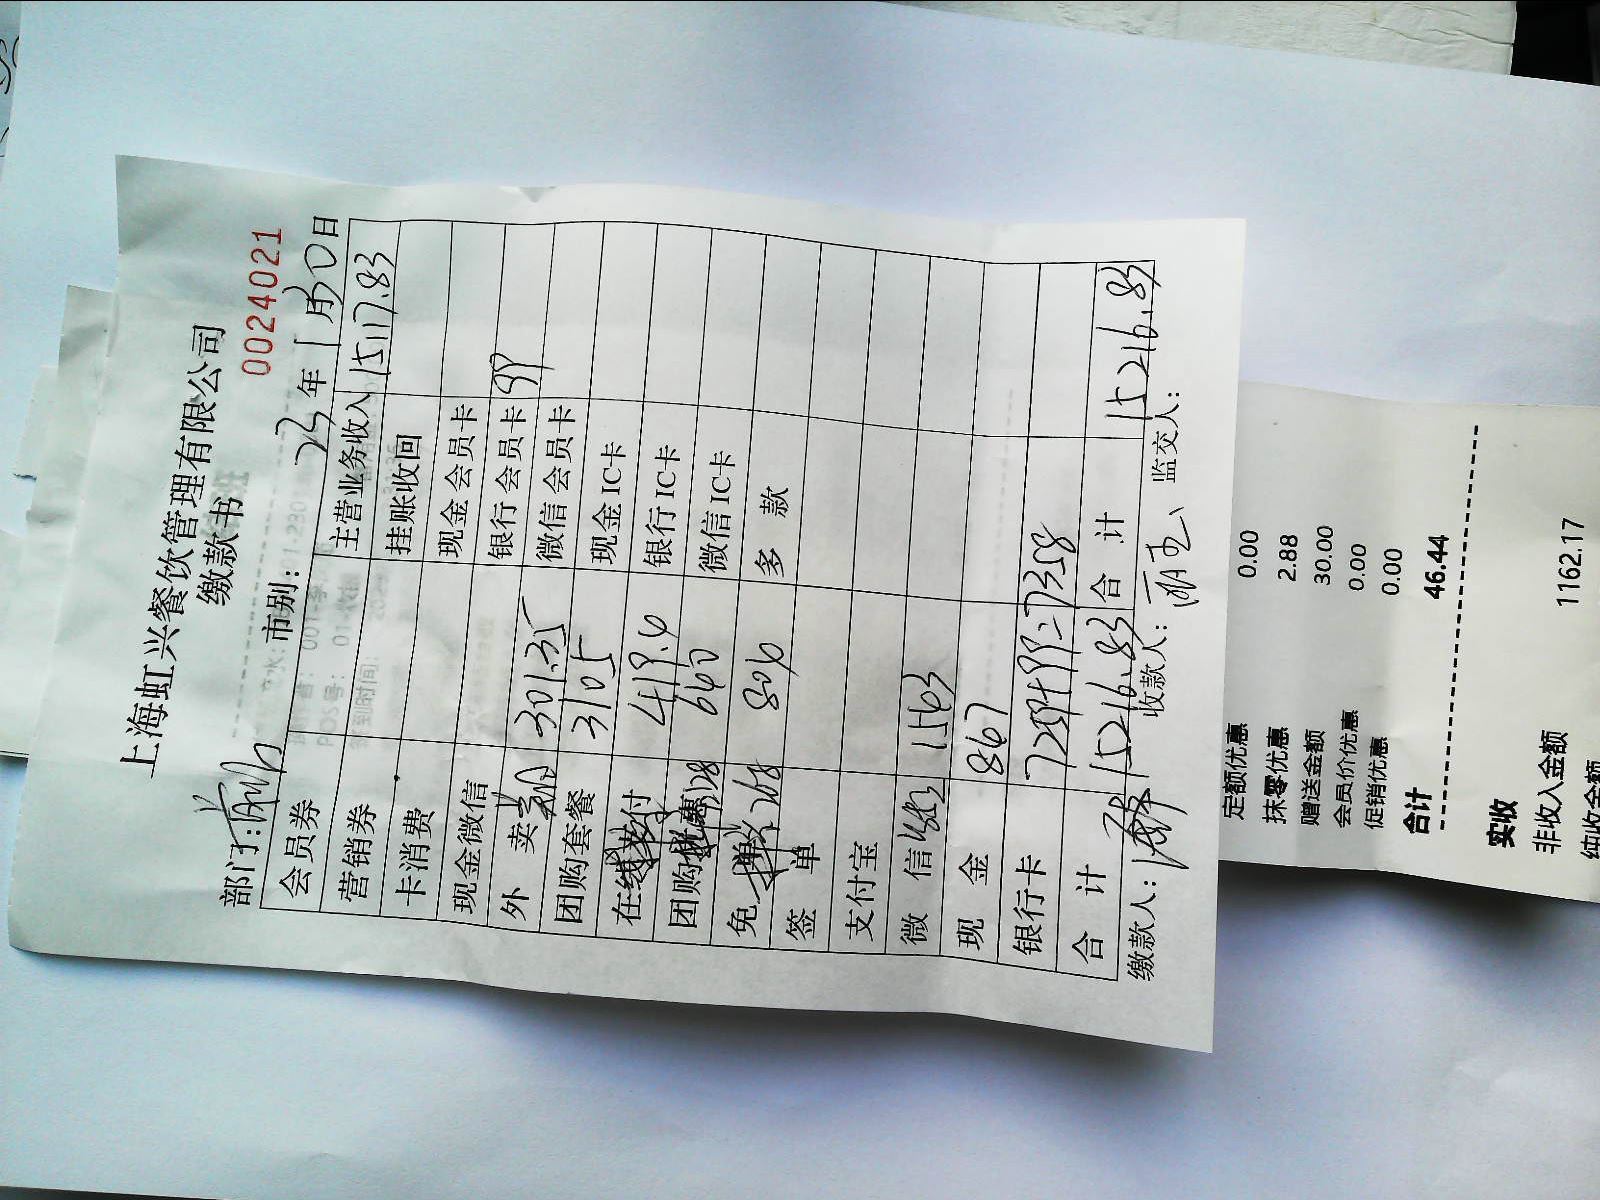 上海虹兴餐饮管理有限公司
缴款书
0024021
部门: 市别: 23年1月30日
会员券 主营业务收入 15117.83
营销券 挂账收回
卡消费 现金会员卡
现金微信 银行会员卡 99
外卖 301.35 微信会员卡
团购套餐 3105 现金IC卡
在线支付 419.4 银行IC卡
团购优惠 128 640 微信IC卡
免单 268 804 多款
签单
支付宝
微信 1583 1543
现金 867
银行卡 7259+99=7358
合计 15216.83 合计 15216.83
缴款人: 收款人: 监交人:
定额优惠 0.00
抹零优惠 2.88
赠送金额 30.00
会员价优惠 0.00
促销优惠 0.00
合计 46.44
实收
非收入金额 1162.17
纯收金额